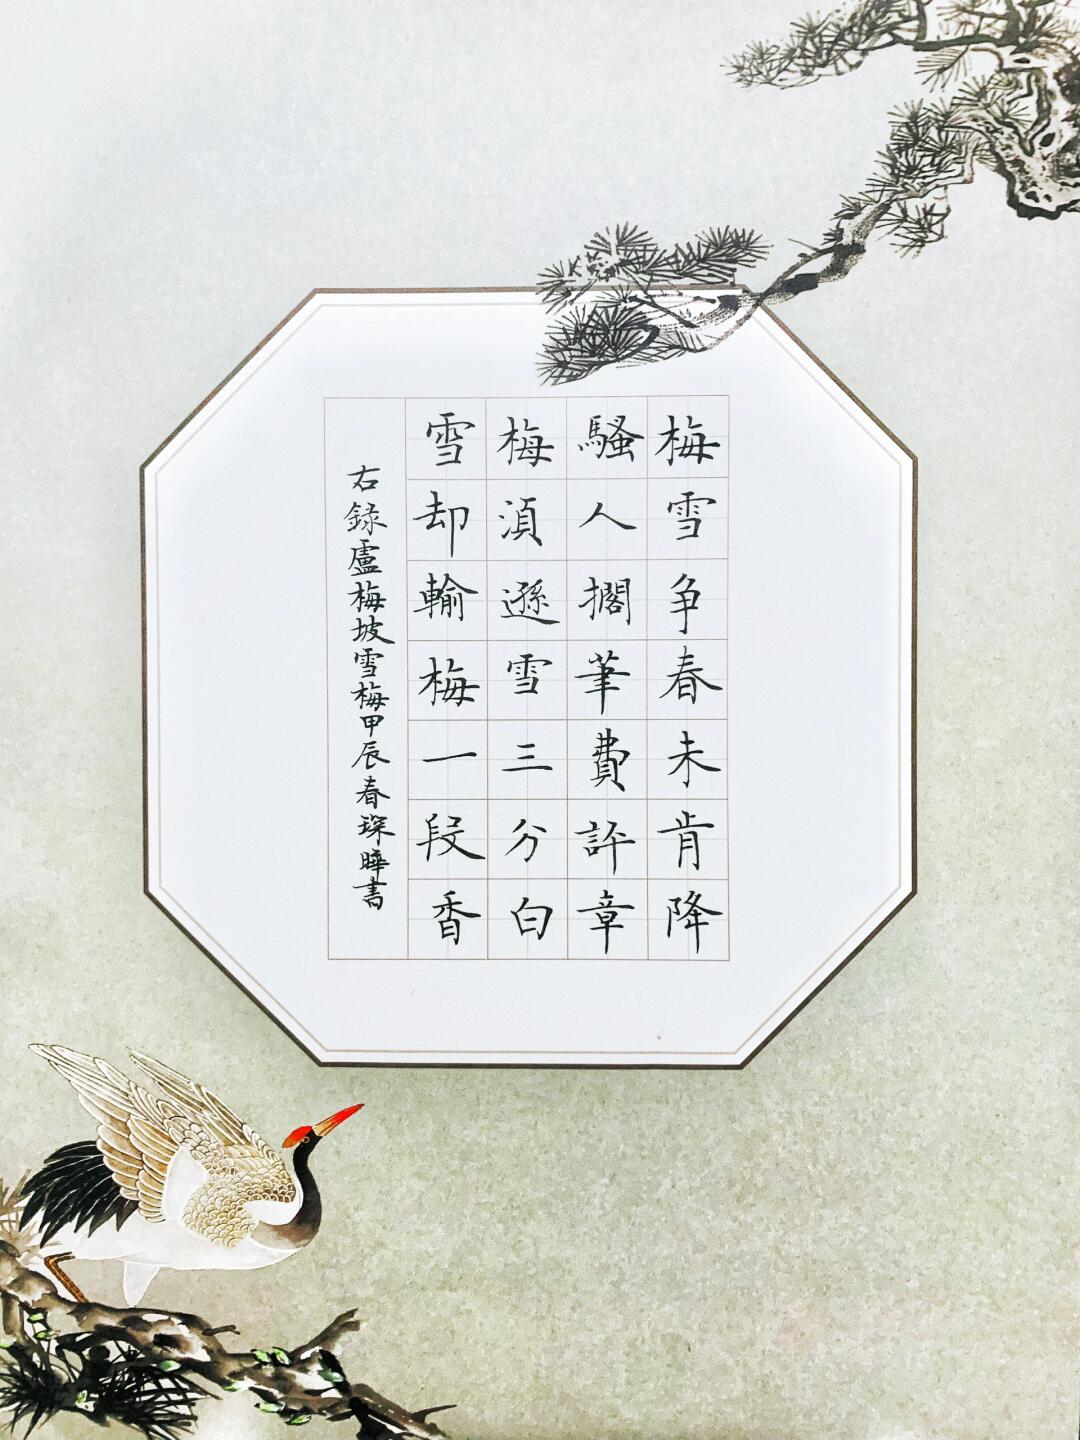 梅雪争春未肯降
騷人擱筆費評章
梅湏遜雪三分白
雪却輸梅一段香
右録盧梅坡雪梅甲辰春琛曄書